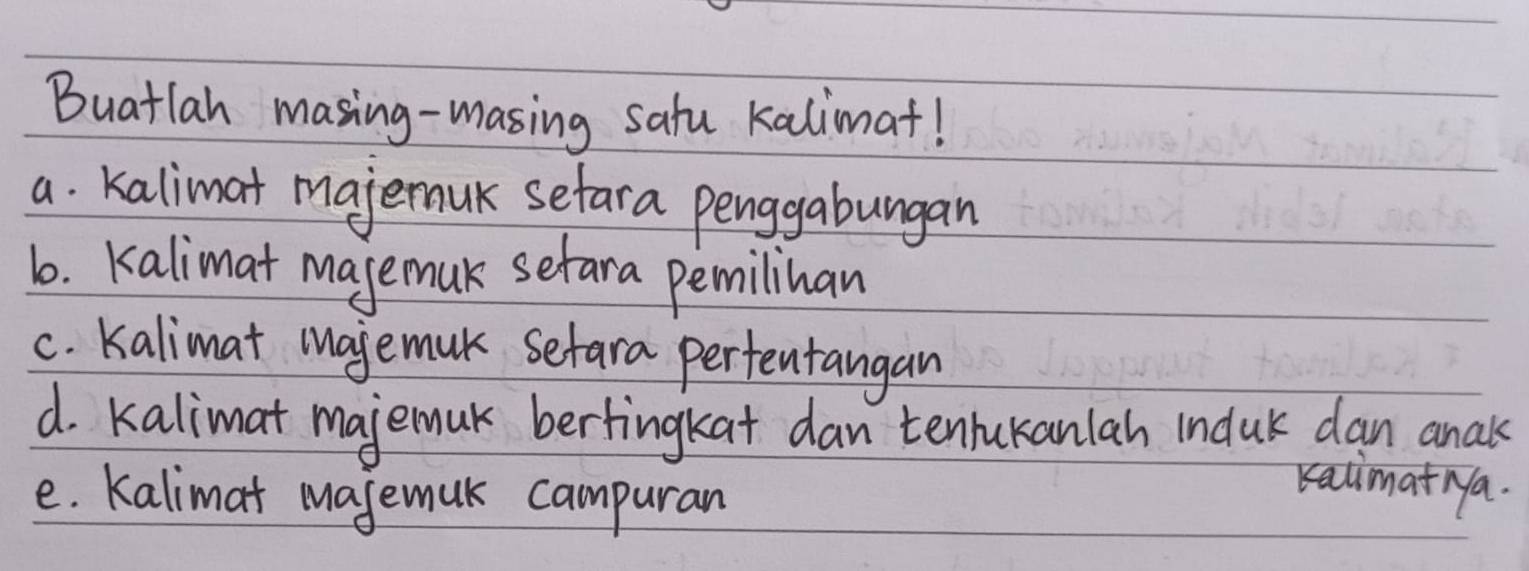 Buatlah masing-masing satu kalimat!
a. Kalimat majemuk setara penggabungan
b. Kalimat majemuk setara pemilihan
c. Kalimat majemuk setara pertentangan
d. Kalimat majemuk bertingkat dan tentukanlah induk dan anak
kalimatnya.
e. Kalimat majemuk campuran